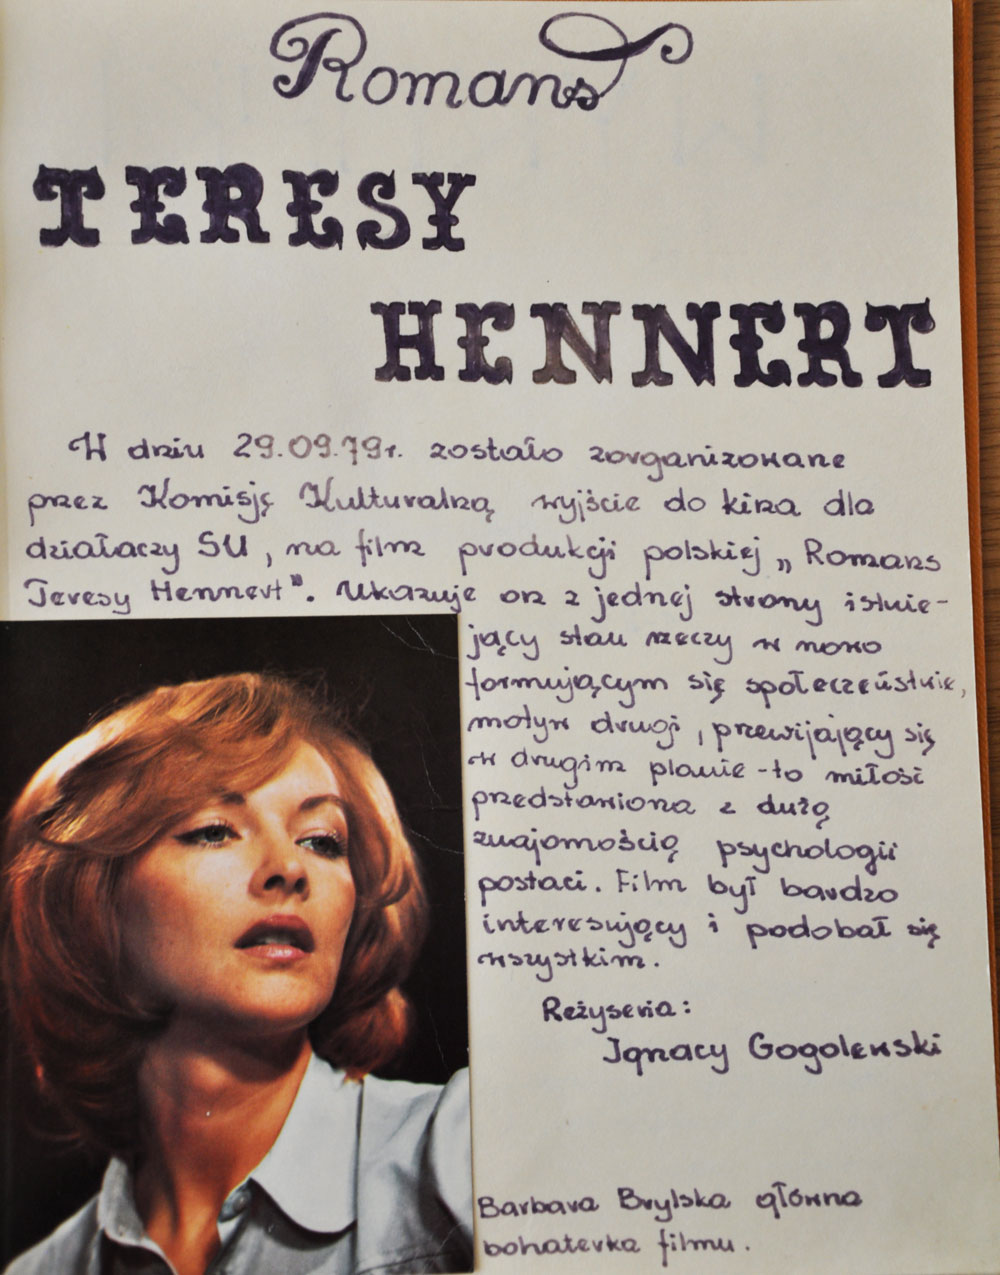 Romans
TERESY
HENNERT
W dniu 29.09.79r. zostało zorganizowane
przez Komisję Kulturalną wyjście do kina dla
działaczy SU, na film produkcji polskiej „Romans
Teresy Hennert". Ukazuje on z jednej strony istnie-
jący stan rzeczy w nowo
formującym się społeczeństwie,
motyw drugi, przewijający się
w drugim planie - to miłość
przedstawiona z dużą
znajomością psychologii
postaci. Film był bardzo
interesujący i podobał się
wszystkim.
Reżyseria:
Ignacy Gogolewski
Barbara Brylska główna
bohaterka filmu.